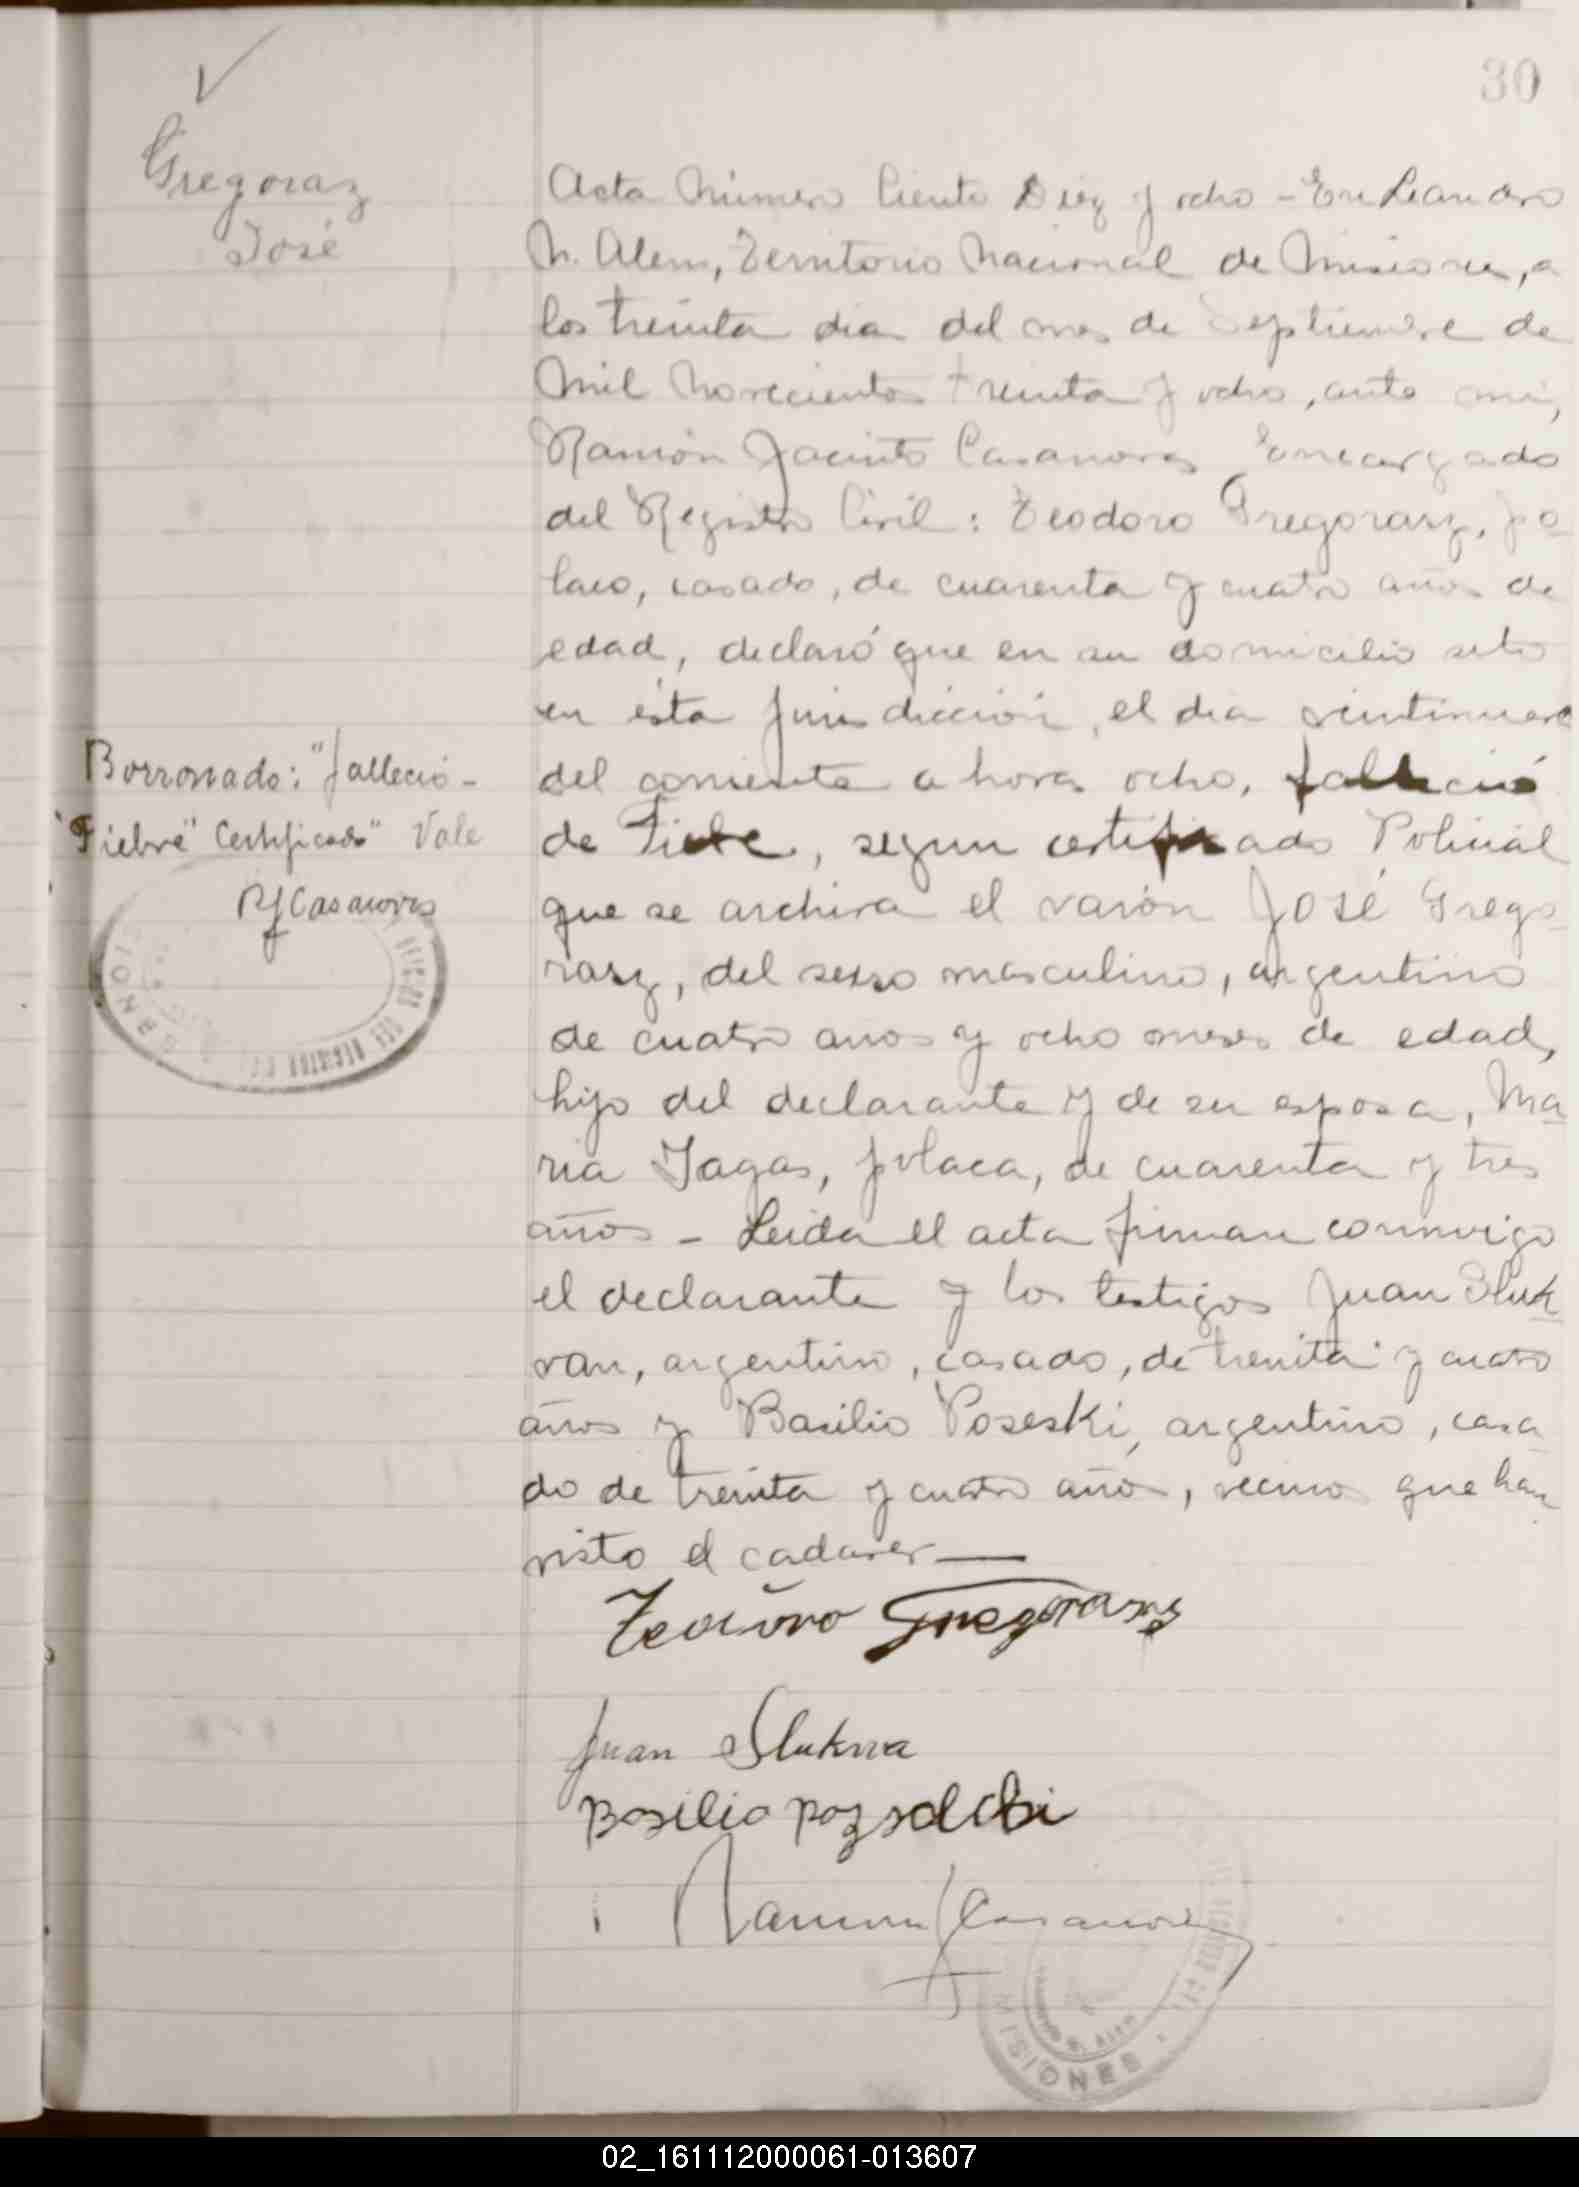 30
Gregoraz
José
Acta Número Ciento Diez y ocho - En Leandro
N. Alem, Territorio Nacional de Misiones, a
los treinta dias del mes de Septiembre de
Mil Novecientos treinta y ocho, ante mi,
Ramón Jacinto Casanova Encargado
del Registro Civil: Teodoro Gregorasz, po
laco, casado, de cuarenta y cuatro años de
edad, declaró que en su domicilio sito
en ésta jurisdicción, el dia veintinueve
del corriente a hora ocho, falleció
de Fiebre, segun certificado Policial
que se archiva el varón José Grego
rasz, del sexo masculino, argentino
de cuatro años y ocho meses de edad,
hijo del declarante y de su esposa, Ma
ria Jagas, polaca, de cuarenta y tres
años - Leida el acta firman conmigo
el declarante y los testigos Juan Sluk
van, argentino, casado, de treinta y cuatro
años y Basilio Poseski, argentino, casa
do de treinta y cuatro años, vecinos que han
visto el cadaver —
Borronado: "falleció -
"Fiebre" Certificado" Vale
RJCasanova
Teodoro Gregorasz
Juan Slukwa
Basilio
Ramon J Casanova
MISIONES
02_161112000061-013607